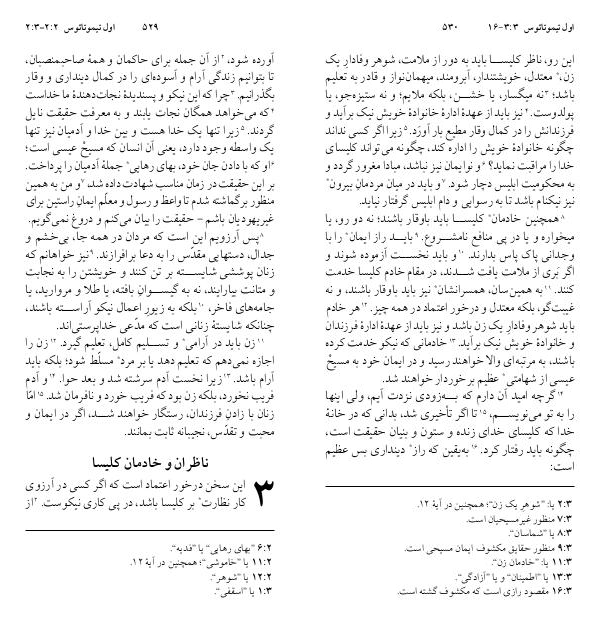 اول تیموتائوس ۲:۲-۲:۳ ۵۲۹
آورده شود، ۲از آن جمله برای حاکمان و همهٔ صاحبمنصبان،
تا بتوانیم زندگی آرام و آسوده‌ای را در کمال دینداری و وقار
بگذرانیم. ۳چرا که این نیکو و پسندیدهٔ نجات‌دهندهٔ ما خداست
۴که می‌خواهد همگان نجات یابند و به معرفت حقیقت نایل
گردند. ۵زیرا تنها یک خدا هست و بین خدا و آدمیان نیز تنها
یک واسطه وجود دارد، یعنی آن انسان که مسیحْ عیسی است؛
۶او که با دادن جان خود، بهای رهایی* جملهٔ آدمیان را پرداخت.
بر این حقیقت در زمان مناسب شهادت داده شد ۷و من به همین
منظور برگماشته شدم تا واعظ و رسول و معلّم ایمانِ راستین برای
غیریهودیان باشم - حقیقت را بیان می‌کنم و دروغ نمی‌گویم.
۸پس آرزویم این است که مردان در همه جا، بی‌خشم و
جدال، دستهایی مقدّس را به دعا برافرازند. ۹نیز خواهانم که
زنان پوششی شایسته بر تن کنند و خویشتن را به نجابت
و متانت بیارایند، نه به گیسوانِ بافته، یا طلا و مروارید، یا
جامه‌های فاخر، ۱۰بلکه به زیورِ اعمال نیکو آراسته باشند،
چنانکه شایستهٔ زنانی است که مدّعی خداپرستی‌اند.
۱۱زن باید در آرامی* و تسلیم کامل، تعلیم گیرد. ۱۲زن را
اجازه نمی‌دهم که تعلیم دهد یا بر مرد* مسلّط شود؛ بلکه باید
آرام باشد. ۱۳زیرا نخست آدم سرشته شد و بعد حوا. ۱۴و آدم
فریب نخورد، بلکه زن بود که فریب خورد و نافرمان شد. ۱۵امّا
زنان با زادن فرزندان، رستگار خواهند شد، اگر در ایمان و
محبت و تقدّس، نجیبانه ثابت بمانند.
ناظران و خادمان کلیسا
۳ این سخن درخور اعتماد است که اگر کسی در آرزوی
کار نظارت* بر کلیسا باشد، در پی کاری نیکوست. ۲از
۶:۲ ”بهای رهایی“ یا ”فدیه“.
۱۱:۲ یا ”خاموشی“؛ همچنین در آیهٔ ۱۲.
۱۲:۲ یا ”شوهر“.
۱:۳ یا ”اسقفی“.
اول تیموتائوس ۳:۳-۱۶ ۵۳۰
این رو، ناظر کلیسا باید به دور از ملامت، شوهر وفادارِ یک
زن،* معتدل، خویشتندار، آبرومند، میهمان‌نواز و قادر به تعلیم
باشد؛ ۳نه میگسار، یا خشن، بلکه ملایم؛ و نه ستیزه‌جو، یا
پولدوست. ۴نیز باید از عهدهٔ ادارهٔ خانوادهٔ خویش نیک برآید و
فرزندانش را در کمال وقار مطیع بار آوَرَد. ۵زیرا اگر کسی نداند
چگونه خانوادهٔ خویش را اداره کند، چگونه می‌تواند کلیسای
خدا را مراقبت نماید؟ ۶و نوایمان نیز نباشد، مبادا مغرور گردد و
به محکومیت ابلیس دچار شود. ۷و باید در میان مردمانِ بیرون*
نیز نیکنام باشد تا به رسوایی و دام ابلیس گرفتار نیاید.
۸همچنین خادمان* کلیسا باید باوقار باشند؛ نه دو رو، یا
میخواره و یا در پی منافع نامشروع. ۹باید راز ایمان* را با
وجدانی پاک پاس بدارند. ۱۰و باید نخست آزموده شوند و
اگر بَری از ملامت یافت شدند، در مقام خادم کلیسا خدمت
کنند. ۱۱به همین‌سان، همسرانشان* نیز باید باوقار باشند، و نه
غیبت‌گو، بلکه معتدل و درخور اعتماد در همه چیز. ۱۲هر خادم
باید شوهر وفادارِ یک زن باشد و نیز باید از عهدهٔ ادارهٔ فرزندان
و خانوادهٔ خویش نیک برآید. ۱۳خادمانی که نیکو خدمت کرده
باشند، به مرتبه‌ای والا خواهند رسید و در ایمان خود به مسیحْ
عیسی از شهامتی* عظیم برخوردار خواهند شد.
۱۴گرچه امید آن دارم که به‌زودی نزدت آیم، ولی اینها
را به تو می‌نویسم، ۱۵تا اگر تأخیری شد، بدانی که در خانهٔ
خدا که کلیسای خدای زنده و ستون و بنیان حقیقت است،
چگونه باید رفتار کرد. ۱۶به‌یقین که راز* دینداری بس عظیم
است:
۲:۳ یا: ”شوهرِ یک زن“؛ همچنین در آیهٔ ۱۲.
۷:۳ منظور غیرمسیحیان است.
۸:۳ یا: ”شماسان“.
۹:۳ منظور حقایق مکشوف ایمان مسیحی است.
۱۱:۳ یا: ”خادمان زن“.
۱۳:۳ یا ”اطمینان“ و یا ”آزادگی“.
۱۶:۳ مقصود رازی است که مکشوف گشته است.